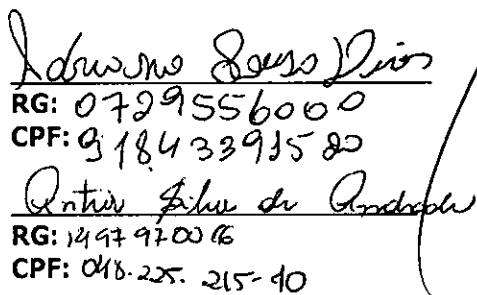 Adriano Souso Dias
RG: 0729556000
CPF: 91843391520
Silva de Andrade
RG: 1497970016
CPF: 048.225.215-10